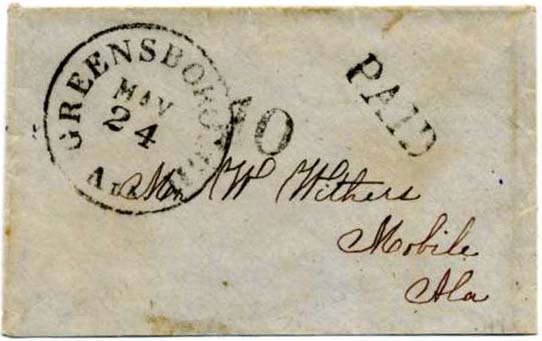 GREENSBOROUGH
MAY
24
Ala
10
PAID
W Withers
Mobile
Ala